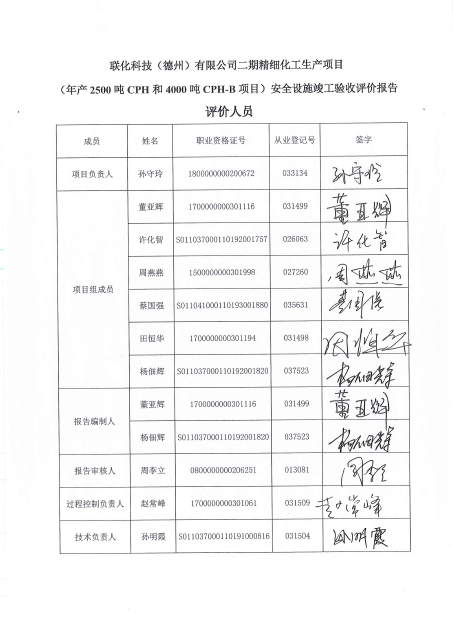 联化科技（德州）有限公司二期精细化工生产项目
（年产 2500 吨 CPH 和 4000 吨 CPH-B 项目）安全设施竣工验收评价报告
评价人员
成员 姓名 职业资格证号 从业登记号 签字
项目负责人 孙守玲 1800000000200672 033134 孙守玲
项目组成员 董亚辉 1700000000301116 031499 董亚辉
许化智 S011037000110192001757 026063 许化智
周燕燕 1500000000301998 027260 周燕燕
蔡国强 S011041000110193001880 035631 蔡国强
田恒华 1700000000301194 031498
杨佃辉 S011037000110192001820 037523 杨佃辉
报告编制人 董亚辉 1700000000301116 031499 董亚辉
杨佃辉 S011037000110192001820 037523 杨佃辉
报告审核人 周李立 0800000000206251 013081
过程控制负责人 赵常峰 1700000000301061 031509 赵常峰
技术负责人 孙明霞 S011037000110191000816 031504 孙明霞